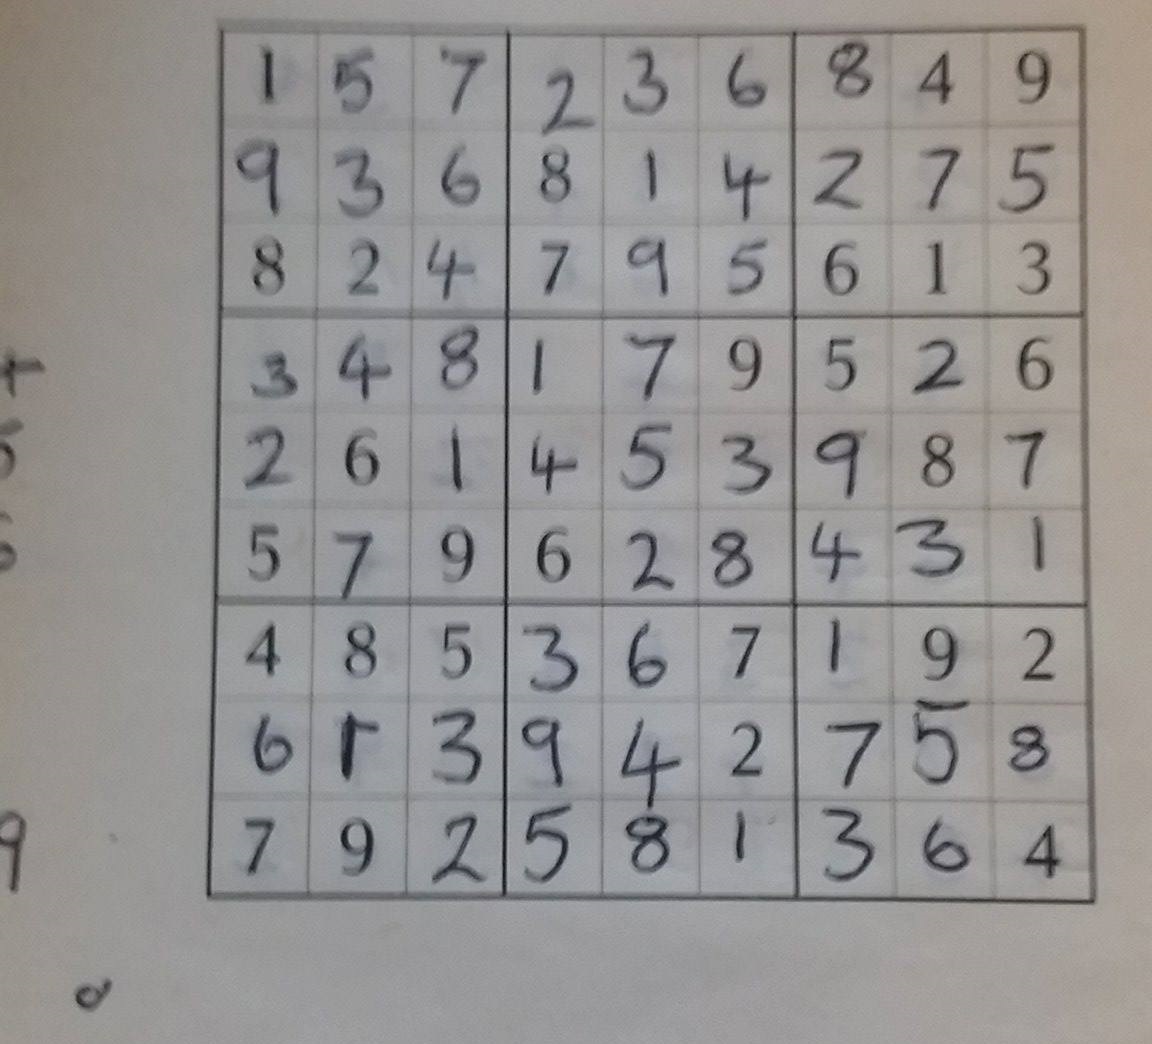 1 5 7 2 3 6 8 4 9
9 3 6 8 1 4 2 7 5
8 2 4 7 9 5 6 1 3
3 4 8 1 7 9 5 2 6
2 6 1 4 5 3 9 8 7
5 7 9 6 2 8 4 3 1
4 8 5 3 6 7 1 9 2
6 1 3 9 4 2 7 5 8
7 9 2 5 8 1 3 6 4
9